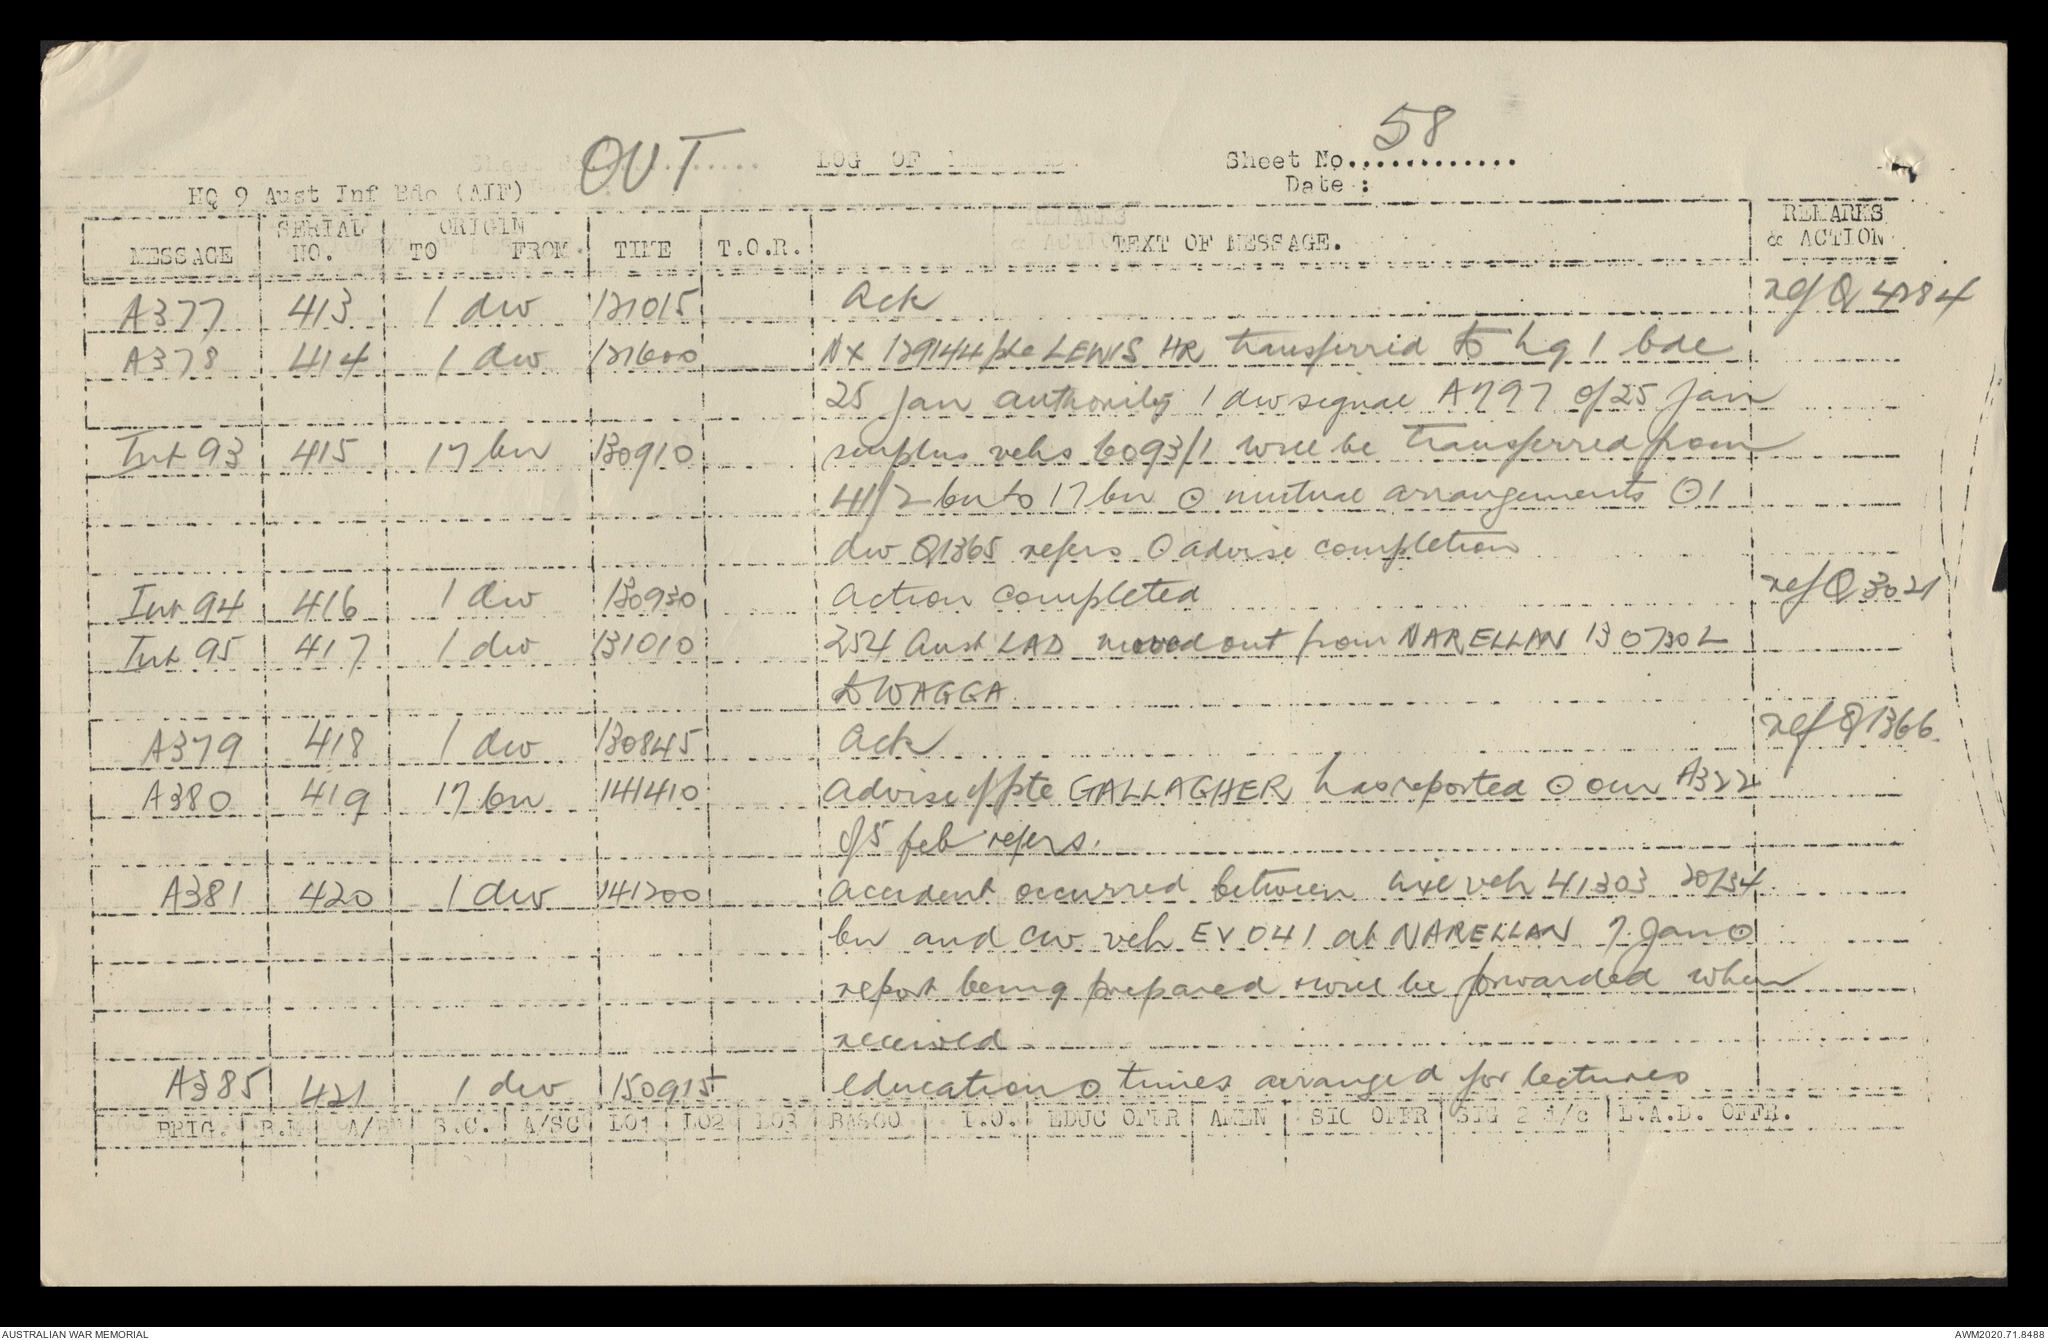 OUT
LOG OF
Sheet No............. 58
Date :
HQ 9 Aust Inf Bde (AIF)
MESSAGE SERIAL NO. ORIGIN TO FROM TIME T.O.R. TEXT OF MESSAGE. REMARKS & ACTION
A377 413 1 div 121015 Ack ref Q 4284
A378 414 1 div 121600 NX 129144 pte LEWIS HR transferred to hq 1 bde
25 Jan authority 1 div signal A797 of 25 Jan
Int 93 415 17 bn 130910 surplus vehs 6093/1 will be transferred from
41/2 bn to 17 bn ⊙ mutual arrangements ⊙ 1
div Q1365 refers ⊙ advise completion
Int 94 416 1 div 130930 Action completed ref Q 3021
Int 95 417 1 div 131010 254 Aust LAD moved out from NARELLAN 130730L
to WAGGA
A379 418 1 div 130845 Ack ref Q1366.
A380 419 17 bn 141410 advise if pte GALLAGHER has reported ⊙ our A322
of 5 feb refers.
A381 420 1 div 141200 accident occurred between veh 41303 20/34
bn and veh EV041 at NARELLAN 7 Jan ⊙
report being prepared & will be forwarded when
received
A385 421 1 div 150915 education ⊙ times arranged for lectures
BRIG. B.M A/BM S.C. A/SC LO1 LO2 LO3 BASCO I.O. EDUC OFFR AMEN SIG OFFR SIG 2 i/c L.A.D. OFFR.
AUSTRALIAN WAR MEMORIAL
AWM2020.71.8488